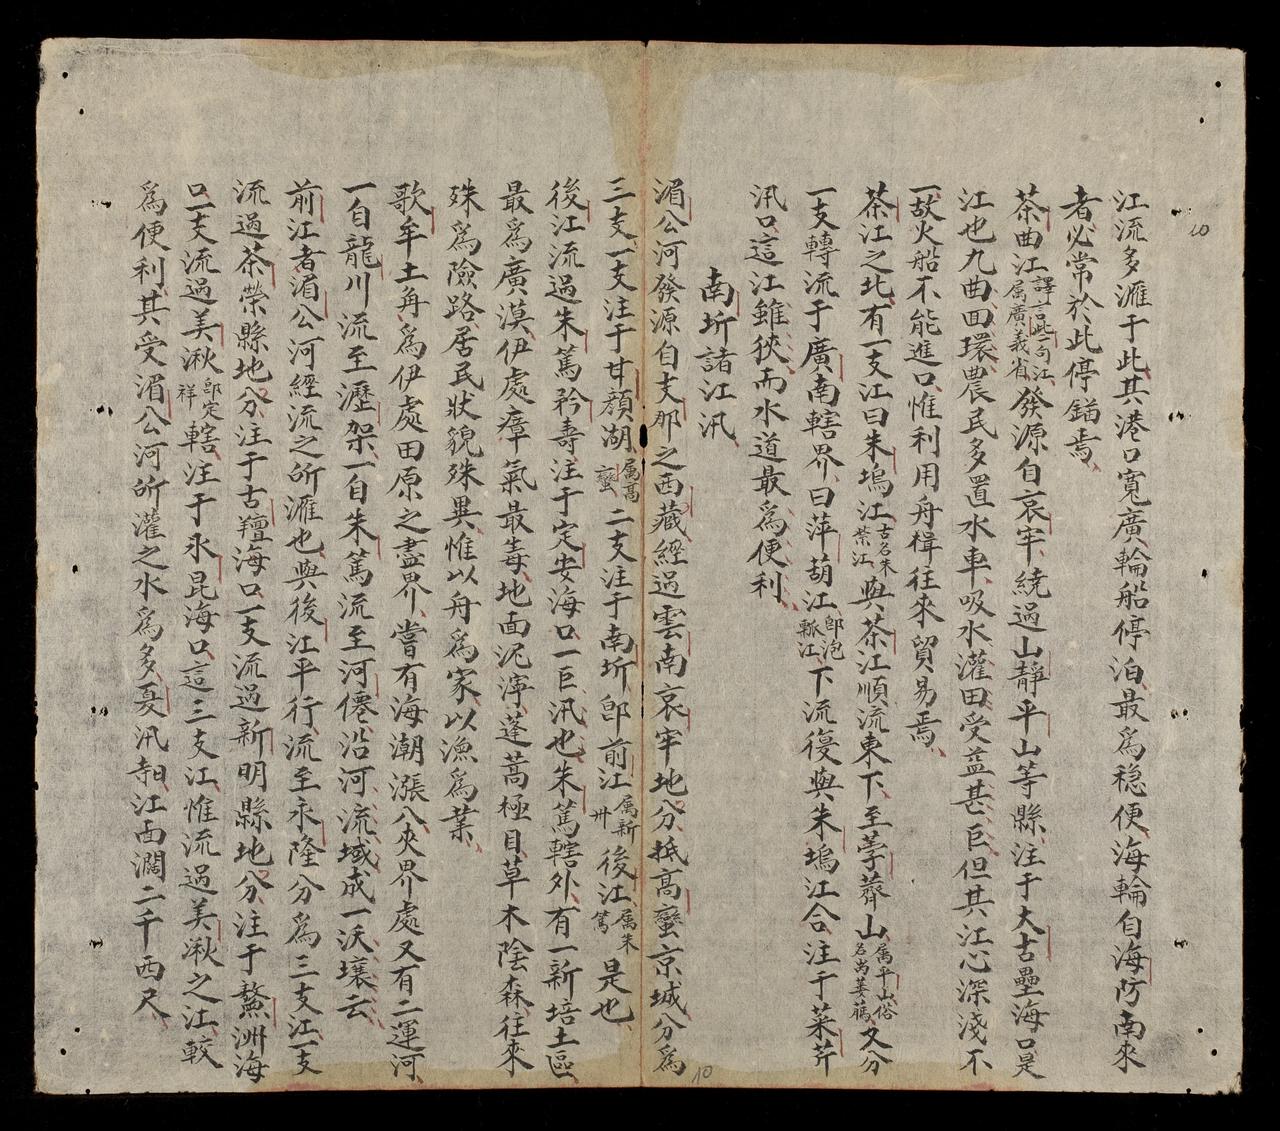 江流多滙于此其港口寬廣輪船停泊最爲穏便海輪自海防南來
者必常於此停錨焉
茶曲江譯言此句江属廣義省發源自哀牢繞過山靜平山等縣注于大古壘海口是
江也九曲回環農民多置水車吸水灌田受益甚巨但其江心深淺不
一故火船不能進口惟利用舟楫往來貿易焉
茶江之北有一支江曰朱塢江古名朱榮江與茶江順流東下至荸薺山属平山俗名岣蔞𦼔又分
一支轉流于廣南轄界曰萍葫江即泡瓢江下流復與朱塢江合注于菜芹
汛口這江雖狹而水道最爲便利
南圻諸江汛
湄公河發源自支那之西藏經過雲南哀牢地分抵高蠻京城分爲
三支一支注于甘顔湖属高蠻二支注于南圻即前江属新卅後江属朱篤是也
後江流過朱篤矜壽注于定安海口一巨汛也朱篤轄外有一新培土區
最爲廣漠伊處瘴氣最毒地面泥濘蓬蒿極目草木陰森往來
殊爲險路居民狀貌殊異惟以舟爲家以漁爲業
歌牟土角爲伊處田原之盡界嘗有海潮漲入夾界處又有二運河
一自龍川流至瀝架一自朱篤流至河僊沿河流域成一沃壤云
前江者湄公河經流之所滙也與後江平行流至永隆分爲三支江一支
流過茶榮縣地分注于古䍴海口一支流過新明縣地分注于鰲洲海
口一支流過美湫即定祥轄注于氷昆海口這三支江惟流過美湫之江較
爲便利其受湄公河所灌之水爲多夏汛時江面濶二千西尺